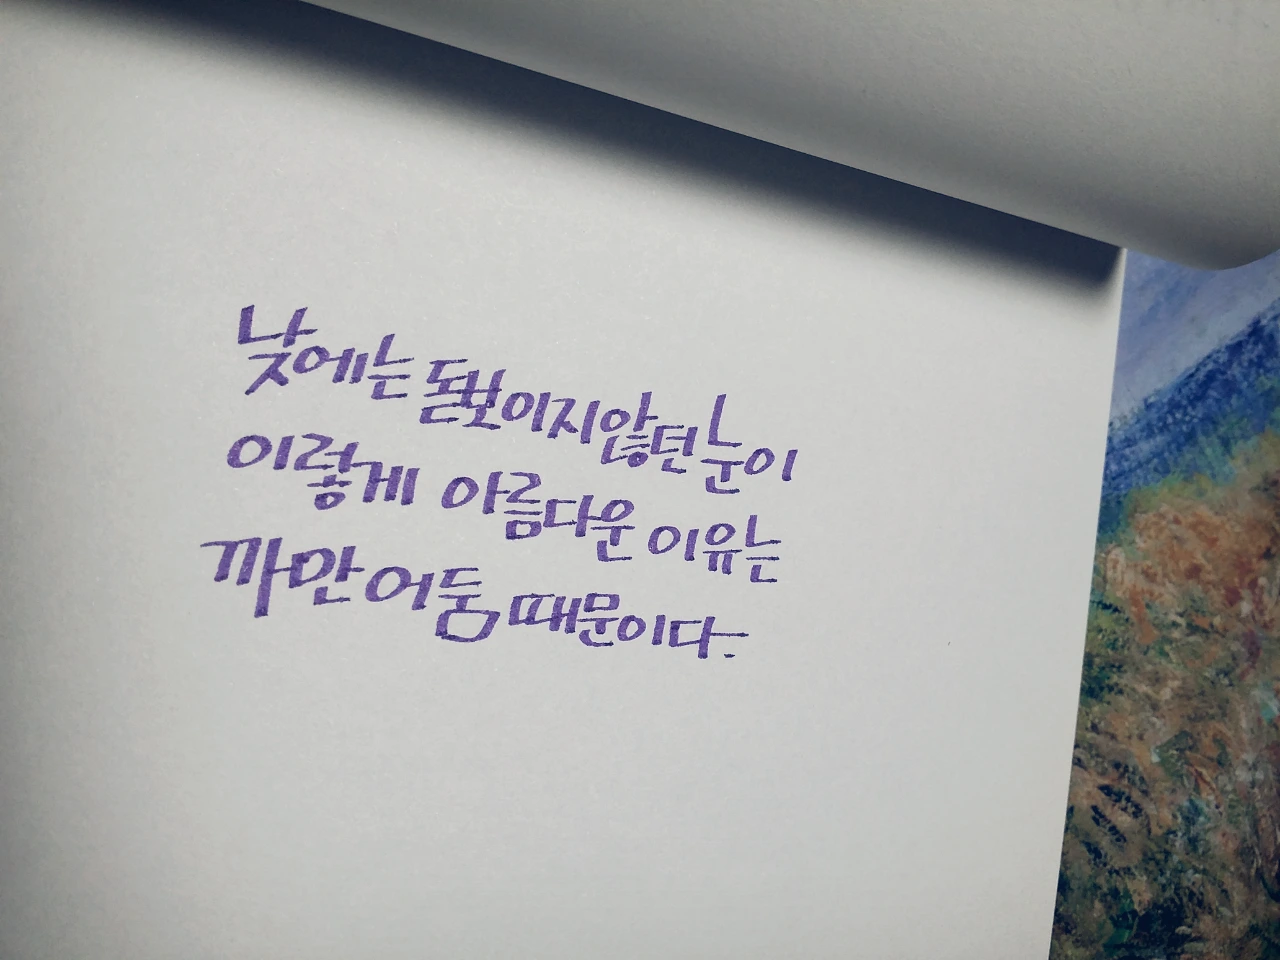 낮에는 돋보이지 않던 눈이
이렇게 아름다운 이유는
까만 어둠 때문이다.